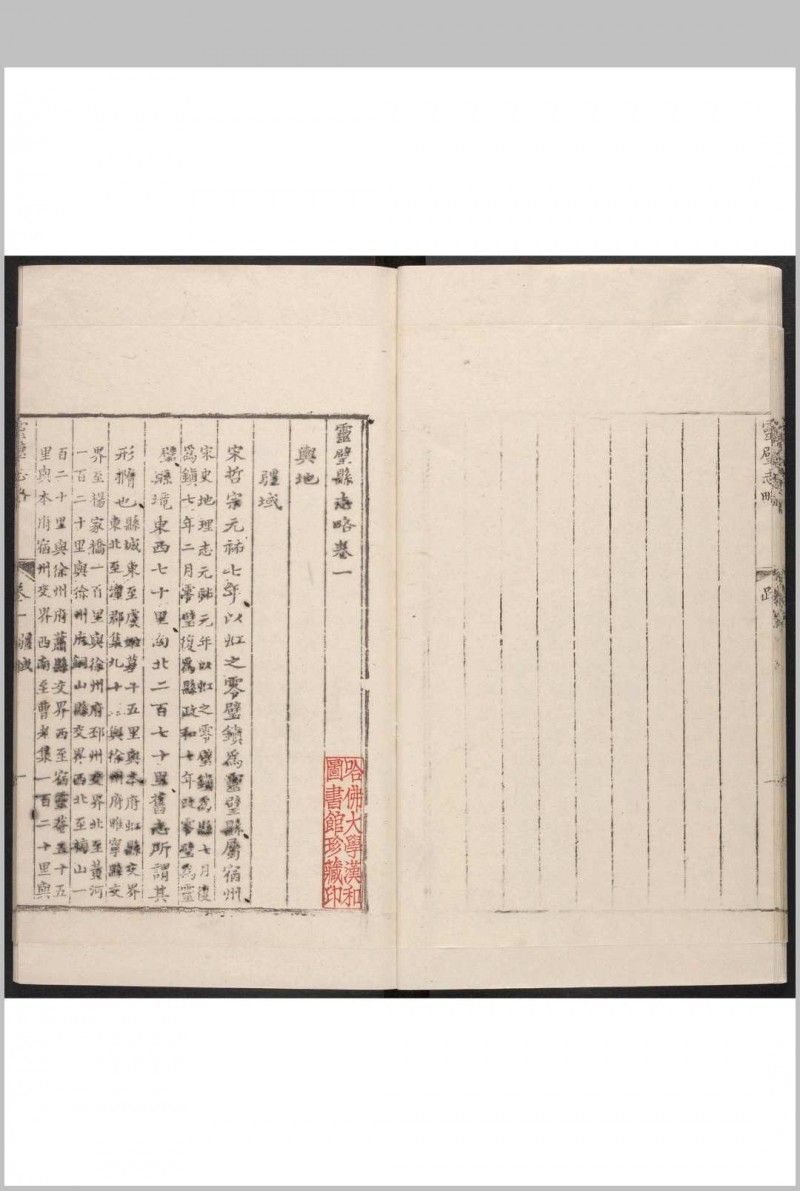 靈璧志略
跋
靈璧縣志略卷一
輿地
疆域
宋哲宗元祐七年以虹之零璧鎮為靈璧縣屬宿州
宋史地理志元祐元年以虹之零璧鎮為縣七月復
為鎮七年二月零璧復為縣政和七年改零璧為靈
璧縣境東西七十里南北二百七十里舊志所謂其
形擠也
縣城東至虞姬墓十五里與本府虹縣交界
東北至潼郡集九十里與徐州府睢寧縣交
界至楊家橋一百里與徐州府邳州交界北至黃河
一百二十里與徐州府銅山縣交界西北至楊山一
百二十里與徐州府蕭縣交界西至宿靈菴五十五
里與本府宿州交界西南至曹老集一百二十里與
靈璧志略
卷一 疆域
一
哈佛大學漢和
圖書館珍藏印